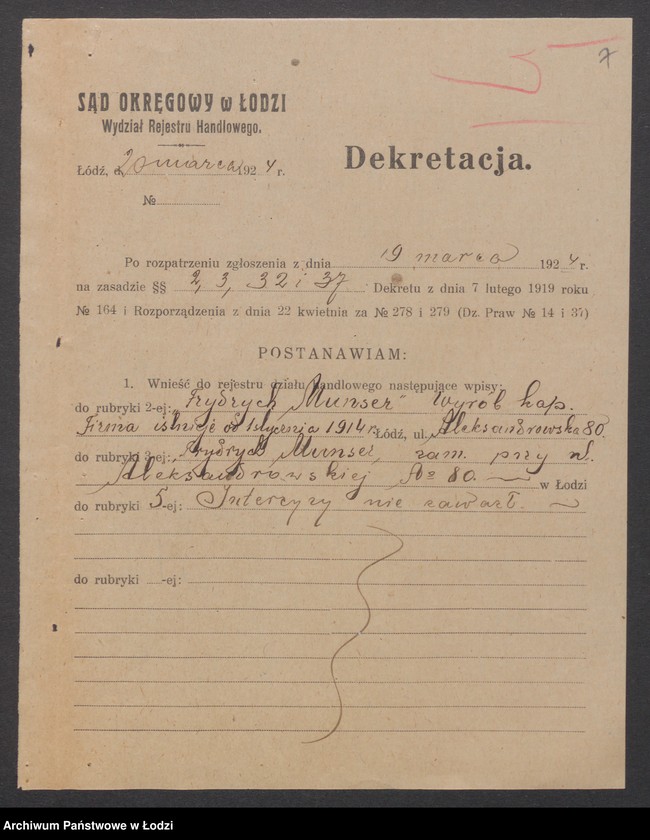 7
SĄD OKRĘGOWY w ŁODZI
Wydział Rejestru Handlowego.
Łódź, d. 20 marca 1924 r.
Dekretacja.
№
Po rozpatrzeniu zgłoszenia z dnia 19 marca 1924 r.
na zasadzie §§ 2, 3, 32 i 37 Dekretu z dnia 7 lutego 1919 roku
№ 164 i Rozporządzenia z dnia 22 kwietnia za № 278 i 279 (Dz. Praw № 14 i 37)
POSTANAWIAM:
1. Wnieść do rejestru działu handlowego następujące wpisy:
do rubryki 2-ej: „Frydrych Munser" Wyrób kap.
Firma istnieje od 1 stycznia 1914 r. Łódź, ul. Aleksandrowska 80.
do rubryki 3-ej: Frydrych Munser, zam. przy ul.
Aleksandrowskiej № 80. w Łodzi
do rubryki 5-ej: Intercyzy nie zawarł.
do rubryki -ej:
Archiwum Państwowe w Łodzi